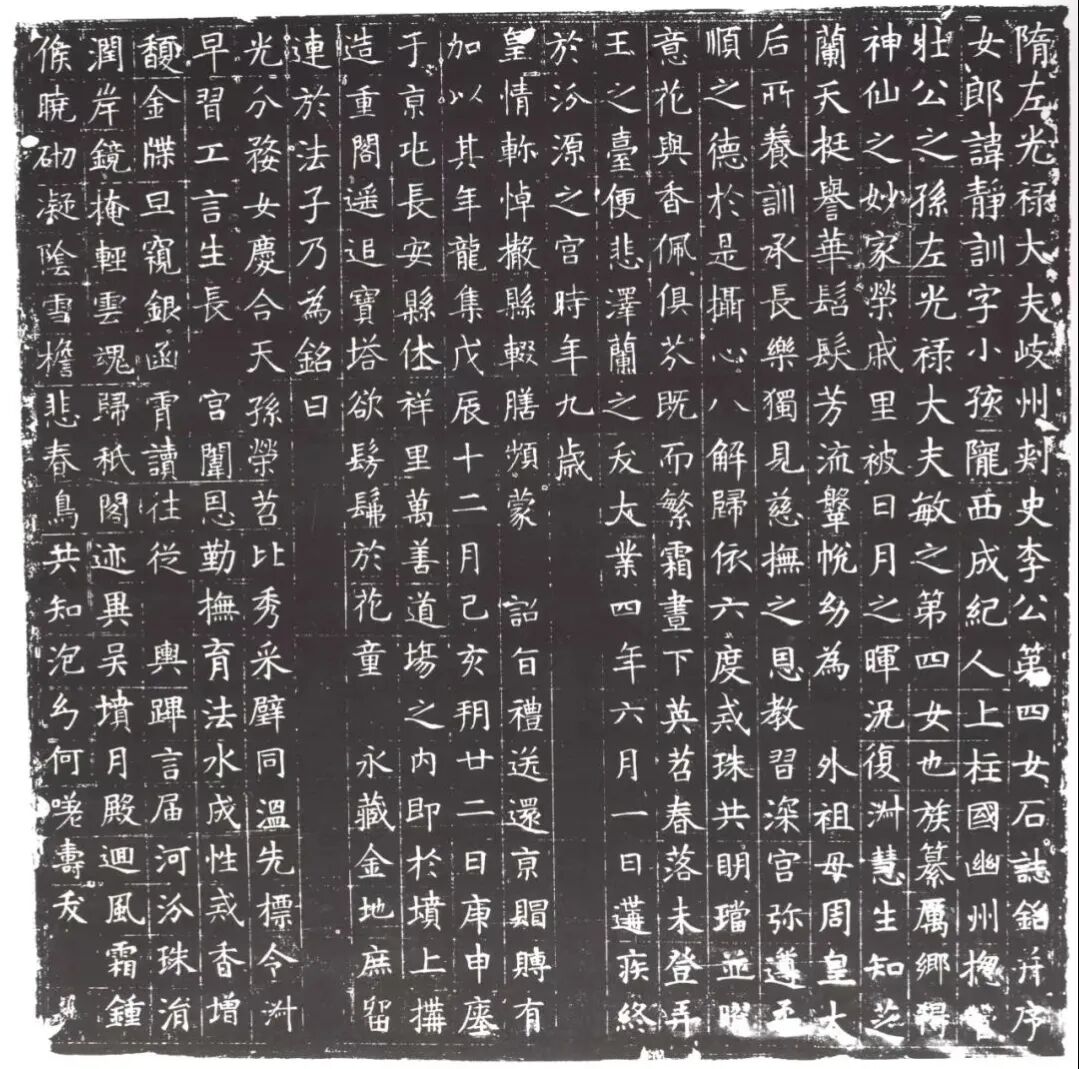 隋左光禄大夫岐州刾史李公第四女石誌銘并序
女郎諱静訓字小孩隴西成紀人上柱國幽州揔管
壮公之孫左光禄大夫敏之第四女也族纂厲鄉得
神仙之妙家榮戚里被日月之暉況復淋慧生知芝
蘭天挺譽華髫髮芳流鞶帨幼為　外祖母周皇太
后所養訓承長樂獨見慈撫之恩教習深宮弥遵柔
順之德於是攝心八解歸依六度戒珠共明璫並曜
意花與香佩俱芬既而繁霜晝下英苕春落未登弄
玉之臺便悲澤蘭之夭大業四年六月一日遘疾終
於汾源之宮時年九歲
皇情軫悼撤縣輟膳頻蒙　詔旨禮送還京賵賻有
加以其年龍集戊辰十二月己亥朔廿二日庚申瘞
于京兆長安縣休祥里萬善道場之内即於墳上構
造重閣遥追寶塔欲髣髴於花童　永藏金地庶留
連於法子乃為銘曰
光分婺女慶合天孫榮苕比秀采璧同溫先標令淋
早習工言生長　宮闈恩勤撫育法水成性戒香增
馥金牒旦窺銀函霄讀往従　輿蹕言届　河汾珠涓
潤岸鏡掩輕雲魂歸秖閣迹異吴墳月殿迴風霜鍾
候曉砌凝陰雪檐悲春鳥共知泡幻何嗟壽夭